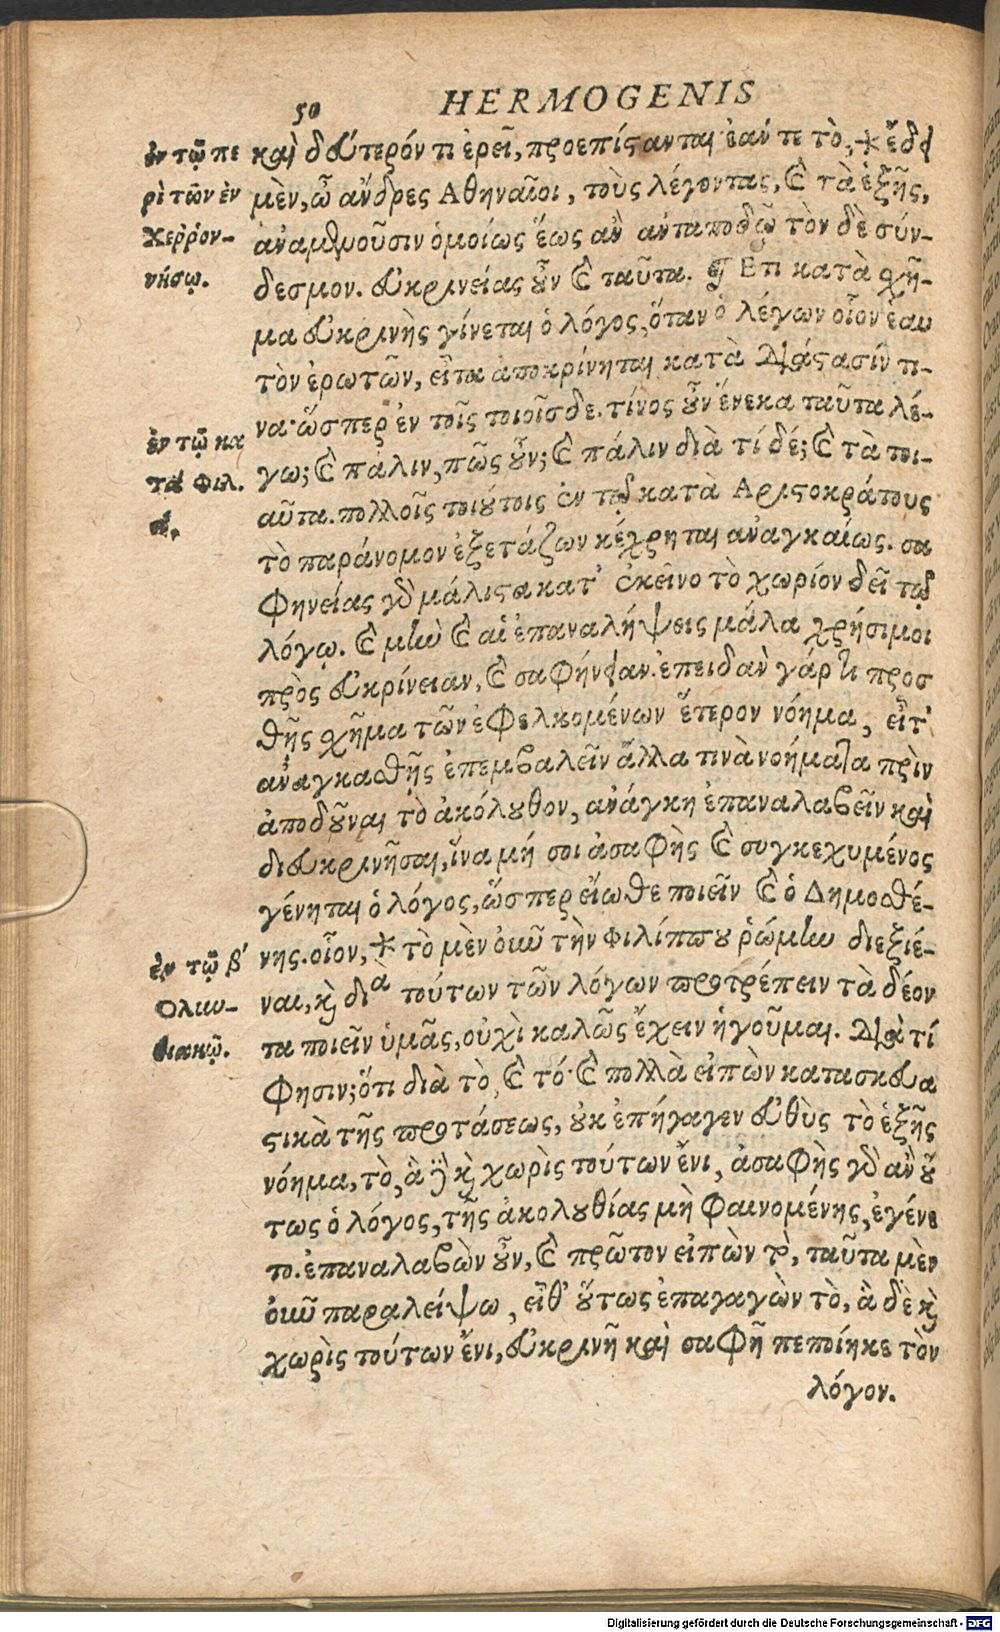 50 HERMOGENIS
καὶ δεύτερόν τι ἐρεῖ, προεπίστανται· ἐάν τε τὸ, * ἔδει
μὲν, ὦ ἄνδρες Ἀθηναῖοι, τοὺς λέγοντας, καὶ τὰ ἑξῆς,
ἀναμενοῦσιν ὁμοίως ἕως ἂν ἀνταποδῷ τὸν δὲ σύν-
δεσμον. εὐκρινείας οὖν καὶ ταῦτα. ¶ Ετι κατὰ σχῆ-
μα εὐκρινὴς γίνεται ὁ λόγος, ὅταν ὁ λέγων οἷον ἑαυ
τὸν ἐρωτῶν, εἶτα ἀποκρίνηται κατὰ διάστασίν τι-
να· ὥσπερ ἐν τοῖς τοιοῖσδε. τίνος οὖν ἕνεκα ταῦτα λέ-
γω; καὶ πάλιν, πῶς οὖν; καὶ πάλιν διὰ τί δέ; καὶ τὰ τοι-
αῦτα. πολλοῖς τοιούτοις ἐν τῷ κατὰ Αριστοκράτους
τὸ παράνομον ἐξετάζων κέχρηται ἀναγκαίως. σα
φηνείας γὰρ μάλιστα κατ' ἐκεῖνο τὸ χωρίον δεῖ τῷ
λόγῳ. καὶ μὴν καὶ αἱ ἐπαναλήψεις μάλα χρήσιμοι
πρὸς εὐκρίνειαν, καὶ σαφήνειαν. ἐπειδὰν γάρ τι προσ
θῇς σχῆμα τῶν ἐφελκομένων ἕτερον νόημα, εἶτ'
ἀναγκασθῇς ἐπεμβαλεῖν ἄλλα τινὰ νοήματα πρὶν
ἀποδοῦναι τὸ ἀκόλουθον, ἀνάγκη ἐπαναλαβεῖν καὶ
διευκρινῆσαι, ἵνα μή σοι ἀσαφὴς καὶ συγκεχυμένος
γένηται ὁ λόγος, ὥσπερ εἴωθε ποιεῖν καὶ ὁ Δημοσθέ-
νης. οἷον, * τὸ μὲν οὖν τὴν Φιλίππου ῥώμην διεξιέ-
ναι, καὶ διὰ τούτων τῶν λόγων προτρέπειν τὰ δέον
τα ποιεῖν ὑμᾶς, οὐχὶ καλῶς ἔχειν ἡγοῦμαι. Διὰ τί
φησιν; ὅτι διὰ τὸ, καὶ τό· καὶ πολλὰ εἰπὼν κατασκευα
στικὰ τῆς προτάσεως, οὐκ ἐπήγαγεν εὐθὺς τὸ ἑξῆς
νόημα, τὸ, ἃ δὲ καὶ χωρὶς τούτων ἔνι, ἀσαφὴς γὰρ ἂν οὕ
τως ὁ λόγος, τῆς ἀκολουθίας μὴ φαινομένης, ἐγένε
το. ἐπαναλαβὼν οὖν, καὶ πρῶτον εἰπὼν τὸ, ταῦτα μὲν
οὖν παραλείψω, εἶθ' οὕτως ἐπαγαγὼν τὸ, ἃ δὲ καὶ
χωρὶς τούτων ἔνι, εὐκρινῆ καὶ σαφῆ πεποίηκε τὸν
λόγον.
ἐν τῷ πε
ρὶ τῶν ἐν
Χερρον-
νήσῳ.
ἐν τῷ κα
τὰ Φιλ.
α.
ἐν τῷ β'
Ολυν-
θιακῷ.
Digitalisierung gefördert durch die Deutsche Forschungsgemeinschaft - DFG